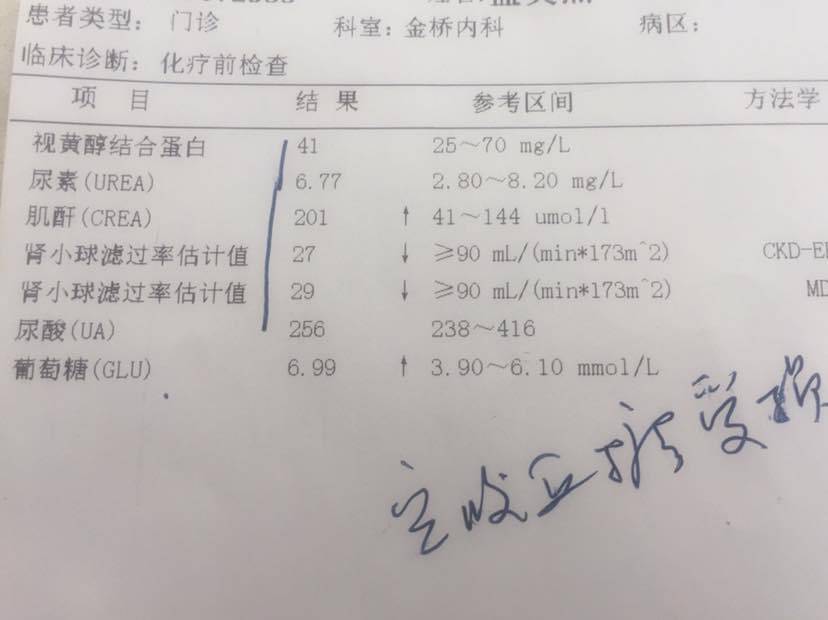 患者类型: 门诊 科室: 金桥内科 病区:
临床诊断: 化疗前检查
项 目 结 果 参考区间 方法学
视黄醇结合蛋白 41 25～70 mg/L
尿素(UREA) 6.77 2.80～8.20 mg/L
肌酐(CREA) 201 ↑ 41～144 umol/l
肾小球滤过率估计值 27 ↓ ≥90 mL/(min*173m^2) CKD-E
肾小球滤过率估计值 29 ↓ ≥90 mL/(min*173m^2) MD
尿酸(UA) 256 238～416
葡萄糖(GLU) 6.99 ↑ 3.90～6.10 mmol/L